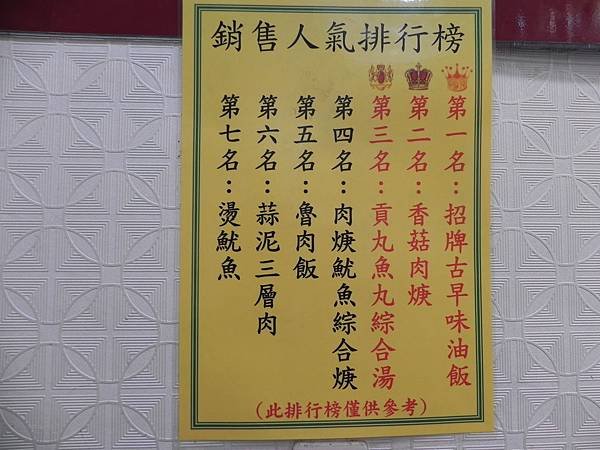 銷售人氣排行榜
第一名：招牌古早味油飯
第二名：香菇肉焿
第三名：貢丸魚丸綜合湯
第四名：肉焿魷魚綜合焿
第五名：魯肉飯
第六名：蒜泥三層肉
第七名：燙魷魚
（此排行榜僅供參考）